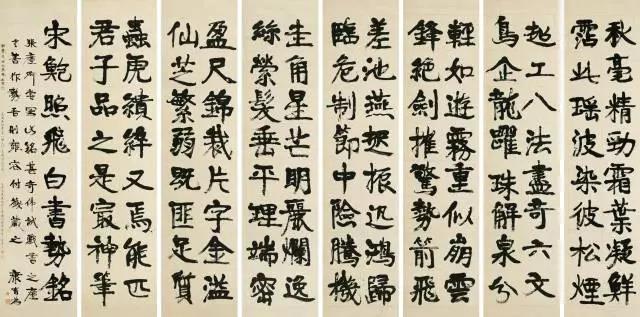 秋毫精勁霜葉凝鮮
霑此瑤波染彼松煙
超工八法盡奇六文
鳥企龍躍珠解泉分
輕如遊霧重似崩雲
鋒絕劍摧驚勢箭飛
差池燕起振迅鴻歸
臨危制節中險騰機
圭角星芒明麗爛逸
絲縈髮垂平理端密
盈尺錦裁片字金溢
仙芝繁弱既匪足質
蟲虎績綷又焉能匹
君子品之是最神筆
宋鮑照飛白書勢銘
銘甚奇偉試戲書之
藏之 康有為